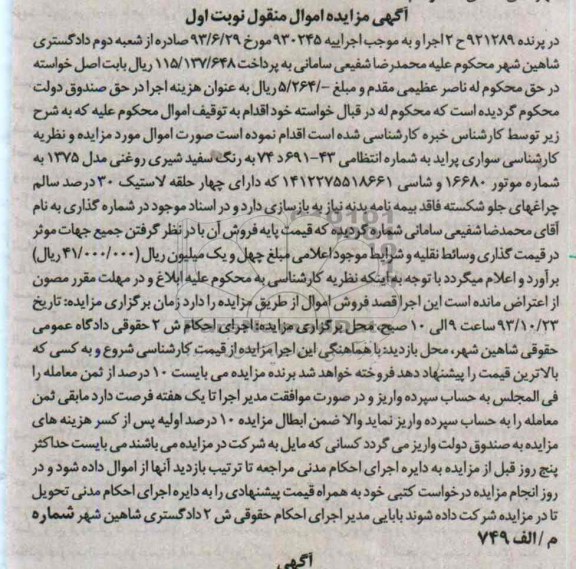 آگهی مزایده اموال منقول نوبت اول
در پرنده ۹۲۱۲۸۹ح ۲ اجرا و به موجب اجراییه ۹۳۰۲۴۵ مورخ ۹۳/۶/۲۹ صادره از شعبه دوم دادگستری
شاهین شهر محکوم علیه محمدرضا شفیعی سامانی به پرداخت ۱۱۵/۱۳۷/۶۴۸ ریال بابت اصل خواسته
در حق محکوم له ناصر عظیمی مقدم و مبلغ -/۵/۲۶۴ ریال به عنوان هزینه اجرا در حق صندوق دولت
محکوم گردیده است که محکوم له در قبال خواسته خود اقدام به توقیف اموال محکوم علیه که به شرح
زیر توسط کارشناس خبره کارشناسی شده است اقدام نموده است صورت اموال مورد مزایده و نظریه
کارشناسی سواری پراید به شماره انتظامی ۴۳-۶۹۱د ۷۴ به رنگ سفید شیری روغنی مدل ۱۳۷۵ به
شماره موتور ۱۶۶۸۰ و شاسی ۱۴۱۲۲۷۵۵۱۸۶۶۱ که دارای چهار حلقه لاستیک ۳۰ درصد سالم
چراغهای جلو شکسته فاقد بیمه نامه بدنه نیاز به بازسازی دارد و در اسناد موجود در شماره گذاری به نام
آقای محمدضا شفیعی سامانی شماره گردیده که قیمت پایه فروش آن با در نظر گرفتن جمیع جهات موثر
در قیمت گذاری وسائط نقلیه و شرایط موجود اعلامی مبلغ چهل و یک میلیون ریال (۴۱/۰۰۰/۰۰۰ ریال)
برآورد و اعلام میگردد با توجه به اینکه نظریه کارشناسی به محکوم علیه ابلاغ و در مهلت مقرر مصون
از اعتراض مانده است این اجرا قصد فروش اموال از طریق مزایده را دارد زمان برگزاری مزایده: تاریخ
۹۳/۱۰/۲۳ ساعت ۹ الی ۱۰ صبح، محل برگزاری مزایده: اجرای احکام ش ۲ حقوقی دادگاه عمومی
حقوقی شاهین شهر، محل بازدید: با هماهنگی این اجرا مزایده از قیمت کارشناسی شروع و به کسی که
بالاترین قیمت را پیشنهاد دهد فروخته خواهد شد برنده مزایده می بایست ۱۰ درصد از ثمن معامله را
فی المجلس به حساب سپرده واریز و در صورت موافقت مدیر اجرا تا یک هفته فرصت دارد مابقی ثمن
معامله را به حساب سپرده واریز نماید والا ضمن ابطال مزایده ۱۰ درصد اولیه پس از کسر هزینه های
مزایده به صندوق دولت واریز می گردد کسانی که مایل به شرکت در مزایده می باشند می بایست حداکثر
پنج روز قبل از مزایده به دایره اجرای احکام مدنی مراجعه تا ترتیب بازدید آنها از اموال داده شود و در
روز انجام مزایده درخواست کتبی خود به همراه قیمت پیشنهادی را به دایره اجرای احکام مدنی تحویل
تا در مزایده شرکت داده شوند بابایی مدیر اجرای احکام حقوقی ش ۲ دادگستری شاهین شهر شماره
م / الف ۷۴۹
آگهی